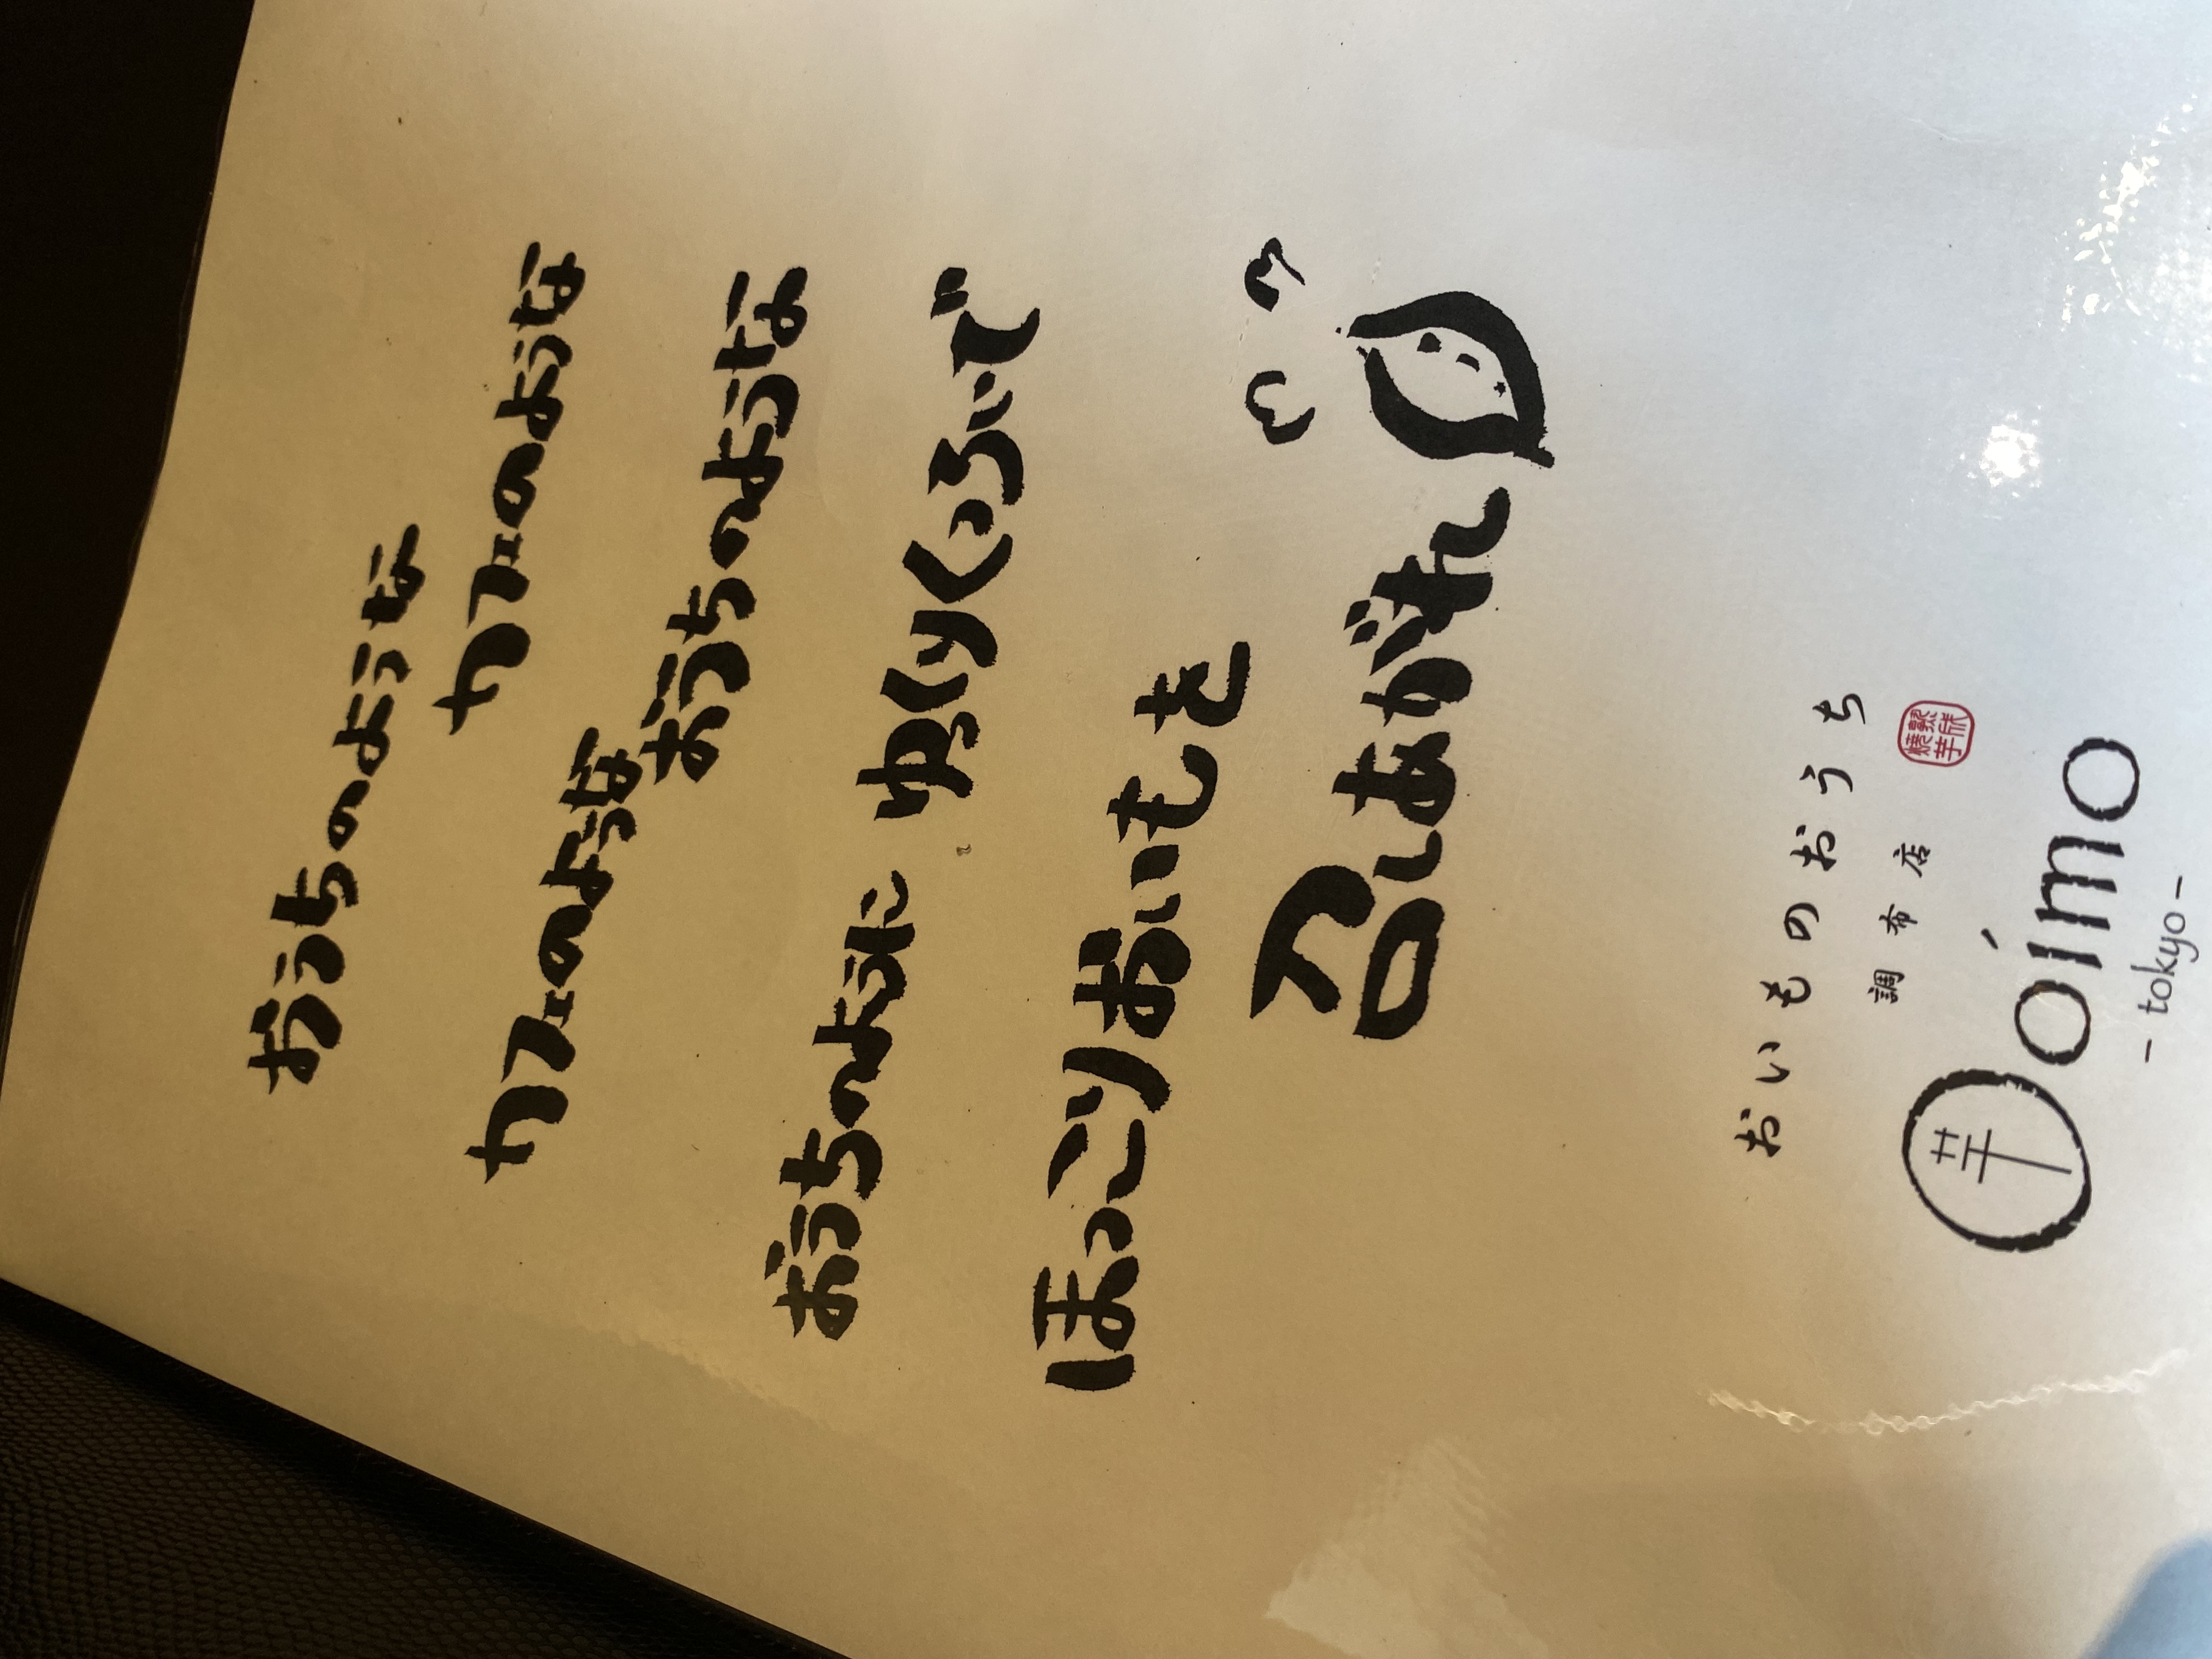 おうちのような
カフェのような
カフェのような
おうちのような
おうちのように ゆっくりろいで
ほっこりおいもを
召しあがれ
おいものおうち
調布店
芋
oimo
- tokyo -